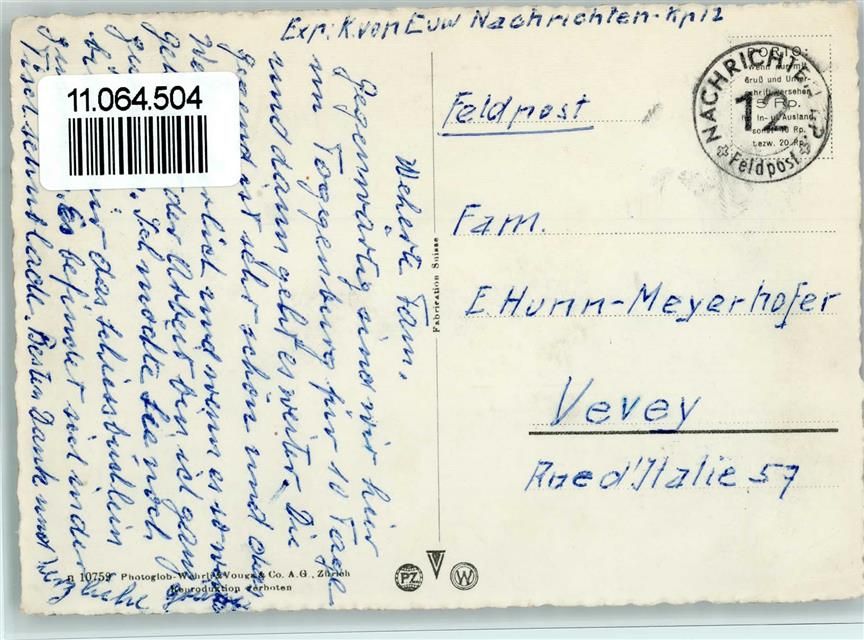 Exp: K. von Euw Nachrichten-Kp 12
11.064.504
Feldpost
NACHRICHTEN KP.
12
Feldpost
PORTO:
wenn nur mit
Gruß und Unter-
schrift versehen
5 Rp.
im In- u. Ausland
sonst 10 Rp.
bezw. 20 Rp.
Fam.
E. Hunn-Meyerhofer
Vevey
Rue d'Italie 57
Fabrication Suisse
Werte Fam.
Gegenwärtig sind wir hier
im Toggenburg für 10 Tage
und dann geht es weiter. Die
Gegend ist sehr schön und
und wenn es so
der Arbeit bin ich ganz
Ich möchte Sie noch
das Schiessbüchlein
Es befindet sich in der
Tischschublade. Besten Dank und
n 10759 Photoglob-Wehrli & Vouga & Co. A.G., Zürich
Reproduktion verboten
PZ
W